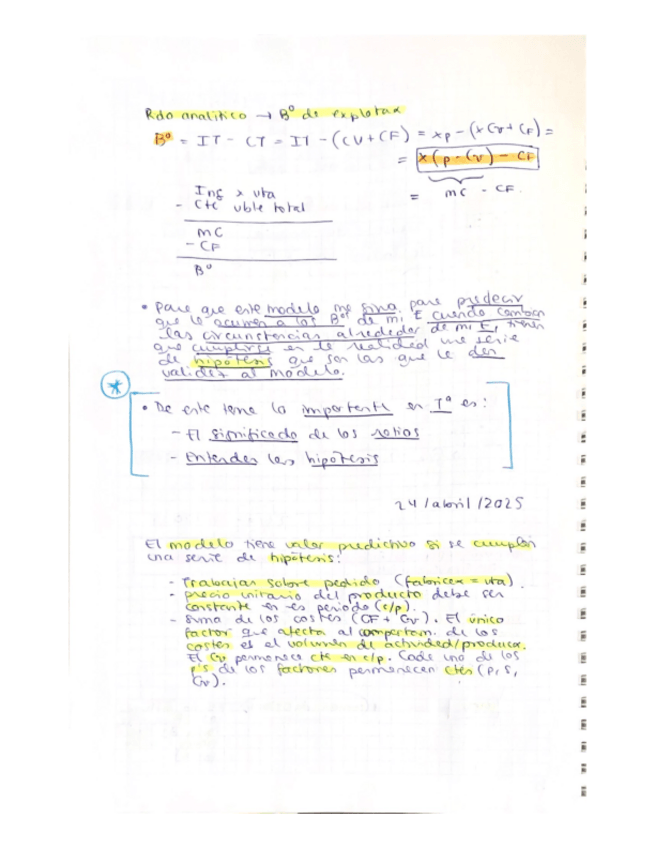 Rdo analítico → Bº de explotax
Bº = IT - CT = IT - (CV + CF) = xp - (x Cv + CF) =
= x(p - Cv) - CF
= mc - CF.
Ing x vta
- Cte vble total
mc
- CF
Bº
• Para que este modelo me sirva para predecir
que le ocurren a los Bº de mi E cuando cambian
las circunstancias alrededor de mi E, tienen
que cumplirse en la realidad una serie
de hipótesis que son las que le dan
validez al modelo.
*
• De este tema lo importante en Tª es:
- El significado de los ratios
- Entender las hipótesis
24/abril/2025
El modelo tiene valor predictivo si se cumplen
una serie de hipótesis:
- Trabajar sobre pedido (fabricax = vta).
- precio unitario del producto debe ser
constante en es periodo (c/p).
- suma de los costes (CF + Cv). El único
factor que afecta al comportam. de los
costes es el volumen de actividad/producx.
El Cv permanece cte en c/p. Cada uno de los
p's de los factores permanecen ctes (p, s,
Cv).